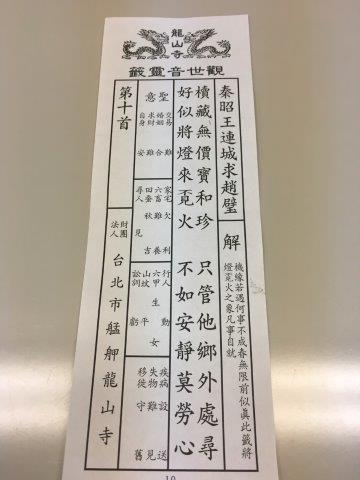 龍山寺
觀世音靈籤
秦昭王連城求趙璧
解
機緣若遇何事不成春無限前似真此籤將
燈覔火之象凡事自就
櫝藏無價寶和珍 只管他鄉外處尋
好似將燈來覔火 不如安靜莫勞心
聖意
交易 難
婚姻 合
求財 難
自身 安
家宅 欠利
六畜 難養
田蚕 秋吉
尋人 見
行人 動
六甲 生女
山坟 平
訟詞 虧
疾病 設送
失物 難見
移徙 守舊
第十首
財團
法人
台北市艋舺龍山寺
10